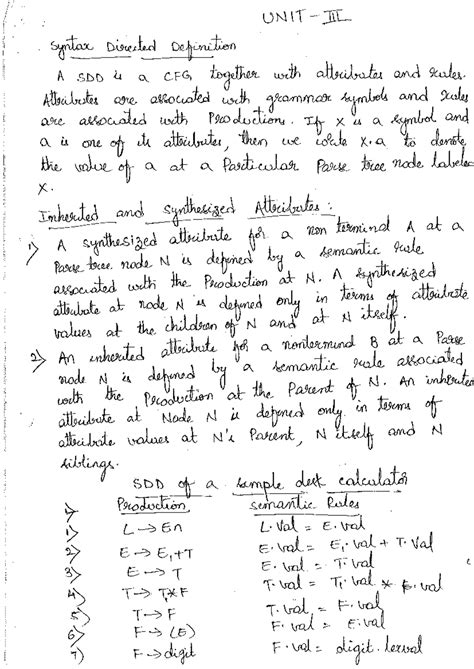 UNIT - III
Syntax Directed Definition
A SDD is a CFG together with attributes and rules.
Attributes are associated with grammar symbols and rules
are associated with Productions. If X is a symbol and
a is one of its attributes, then we write X.a to denote
the value of a at a Particular Parse tree node labeled
X.
Inherited and Synthesized Attributes :
1) A synthesized attribute for a non terminal A at a
Parse tree node N is defined by a semantic rule
associated with the Production at N. A synthesized
attribute at node N is defined only in terms of attribute
values at the children of N and at N itself.
2) An inherited attribute for a nonterminal B at a Parse
node N is defined by a semantic rule associated
with the Production at the Parent of N. An inherited
attribute at Node N is defined only in terms of
attribute values at N's Parent, N itself and N
siblings.
SDD of a simple desk calculator
Production Semantic Rules
1) L → En L.Val = E.val
2) E → E₁+T E.val = E₁.val + T.Val
3) E → T E.val = T.val
4) T → T₁*F T.val = T₁.val * F.val
5) T → F T.val = F.val
6) F → (E) F.val = E.val
7) F → digit F.val = digit.lexval